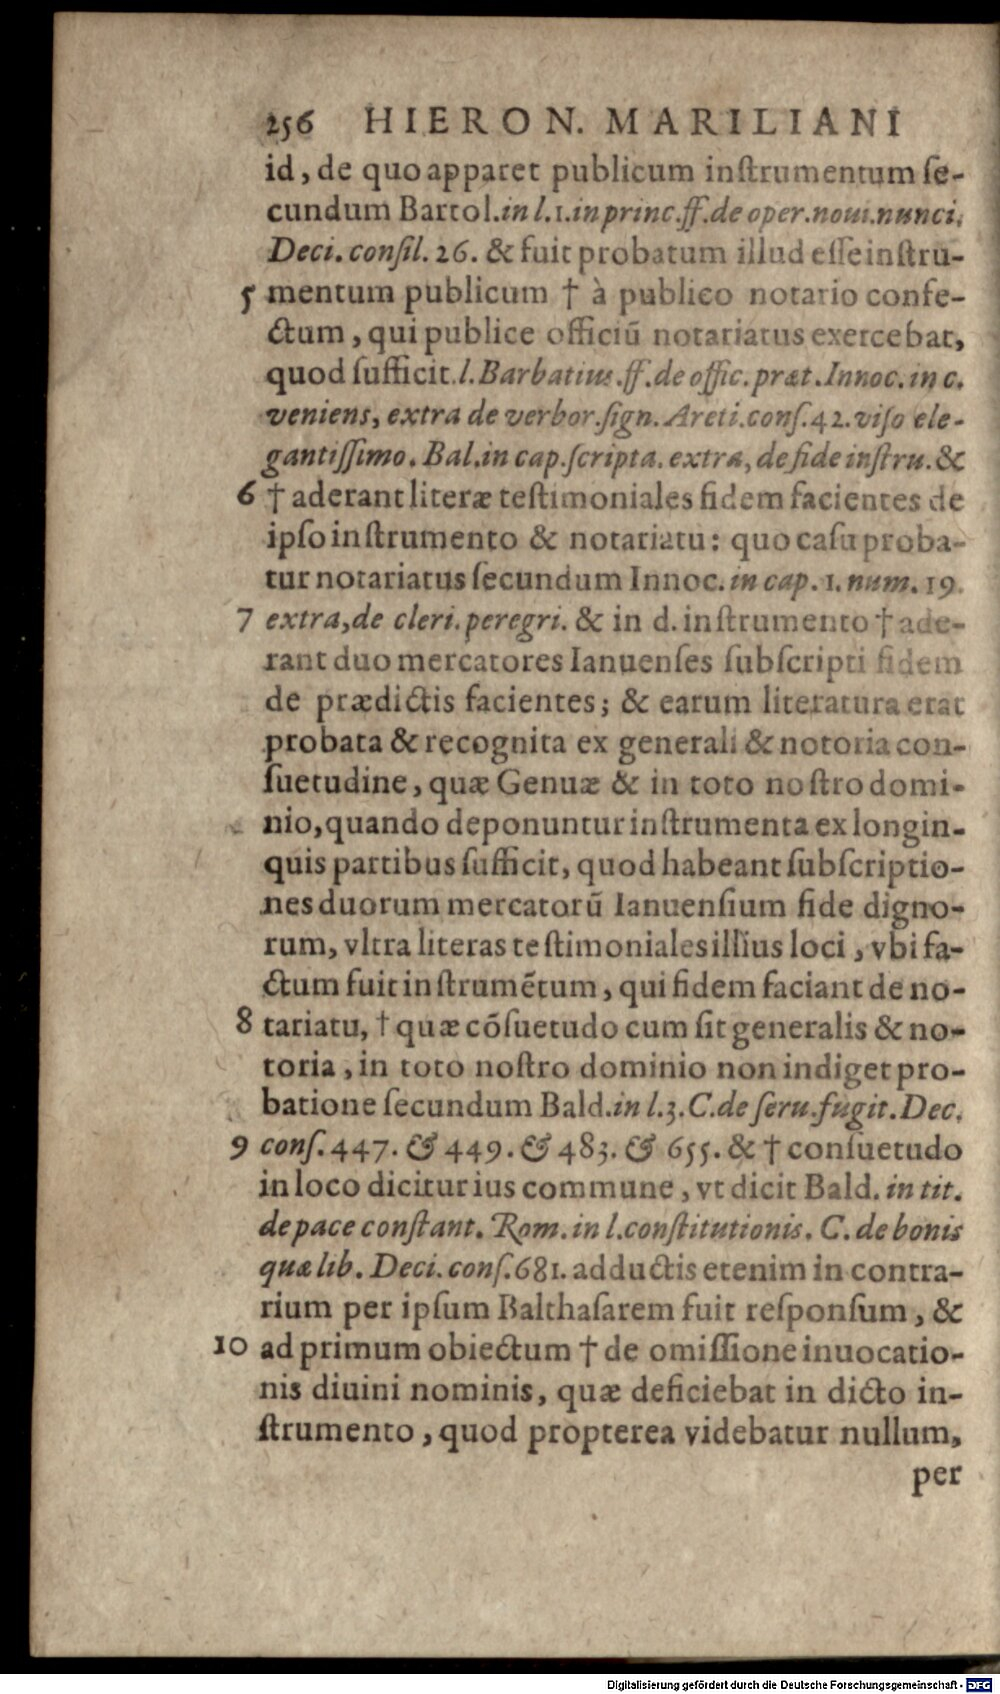 256 HIERON. MARILIANI
id, de quo apparet publicum inſtrumentum ſe-
cundum Bartol. in l. 1. in princ. ff. de oper. noui. nunci.
Deci. conſil. 26. & fuit probatum illud eſſe inſtru-
5 mentum publicum † à publico notario confe-
ctum, qui publice officiū notariatus exercebat,
quod ſufficit l. Barbatius. ff. de offic. præt. Innoc. in c.
veniens, extra de verbor. ſign. Areti. conſ. 42. viſo ele-
gantiſſimo. Bal. in cap. ſcripta. extra, de fide inſtru. &
6 † aderant literæ teſtimoniales fidem facientes de
ipſo inſtrumento & notariatu: quo caſu proba-
tur notariatus ſecundum Innoc. in cap. 1. num. 19.
7 extra, de cleri. peregri. & in d. inſtrumento † ade-
rant duo mercatores Ianuenſes ſubſcripti fidem
de prædictis facientes; & earum literatura erat
probata & recognita ex generali & notoria con-
ſuetudine, quæ Genuæ & in toto noſtro domi-
nio, quando deponuntur inſtrumenta ex longin-
quis partibus ſufficit, quod habeant ſubſcriptio-
nes duorum mercatorū Ianuenſium fide digno-
rum, vltra literas teſtimoniales illius loci, vbi fa-
ctum fuit inſtrumētum, qui fidem faciant de no-
8 tariatu, † quæ cōſuetudo cum ſit generalis & no-
toria, in toto noſtro dominio non indiget pro-
batione ſecundum Bald. in l. 3. C. de ſeru. fugit. Dec.
9 conſ. 447. & 449. & 483. & 655. & † conſuetudo
in loco dicitur ius commune, vt dicit Bald. in tit.
de pace conſtant. Rom. in l. conſtitutionis. C. de bonis
quæ lib. Deci. conſ. 681. adductis etenim in contra-
rium per ipſum Balthaſarem fuit reſponſum, &
10 ad primum obiectum † de omiſſione inuocatio-
nis diuini nominis, quæ deficiebat in dicto in-
ſtrumento, quod propterea videbatur nullum,
per
Digitalisierung gefördert durch die Deutsche Forschungsgemeinschaft - DFG